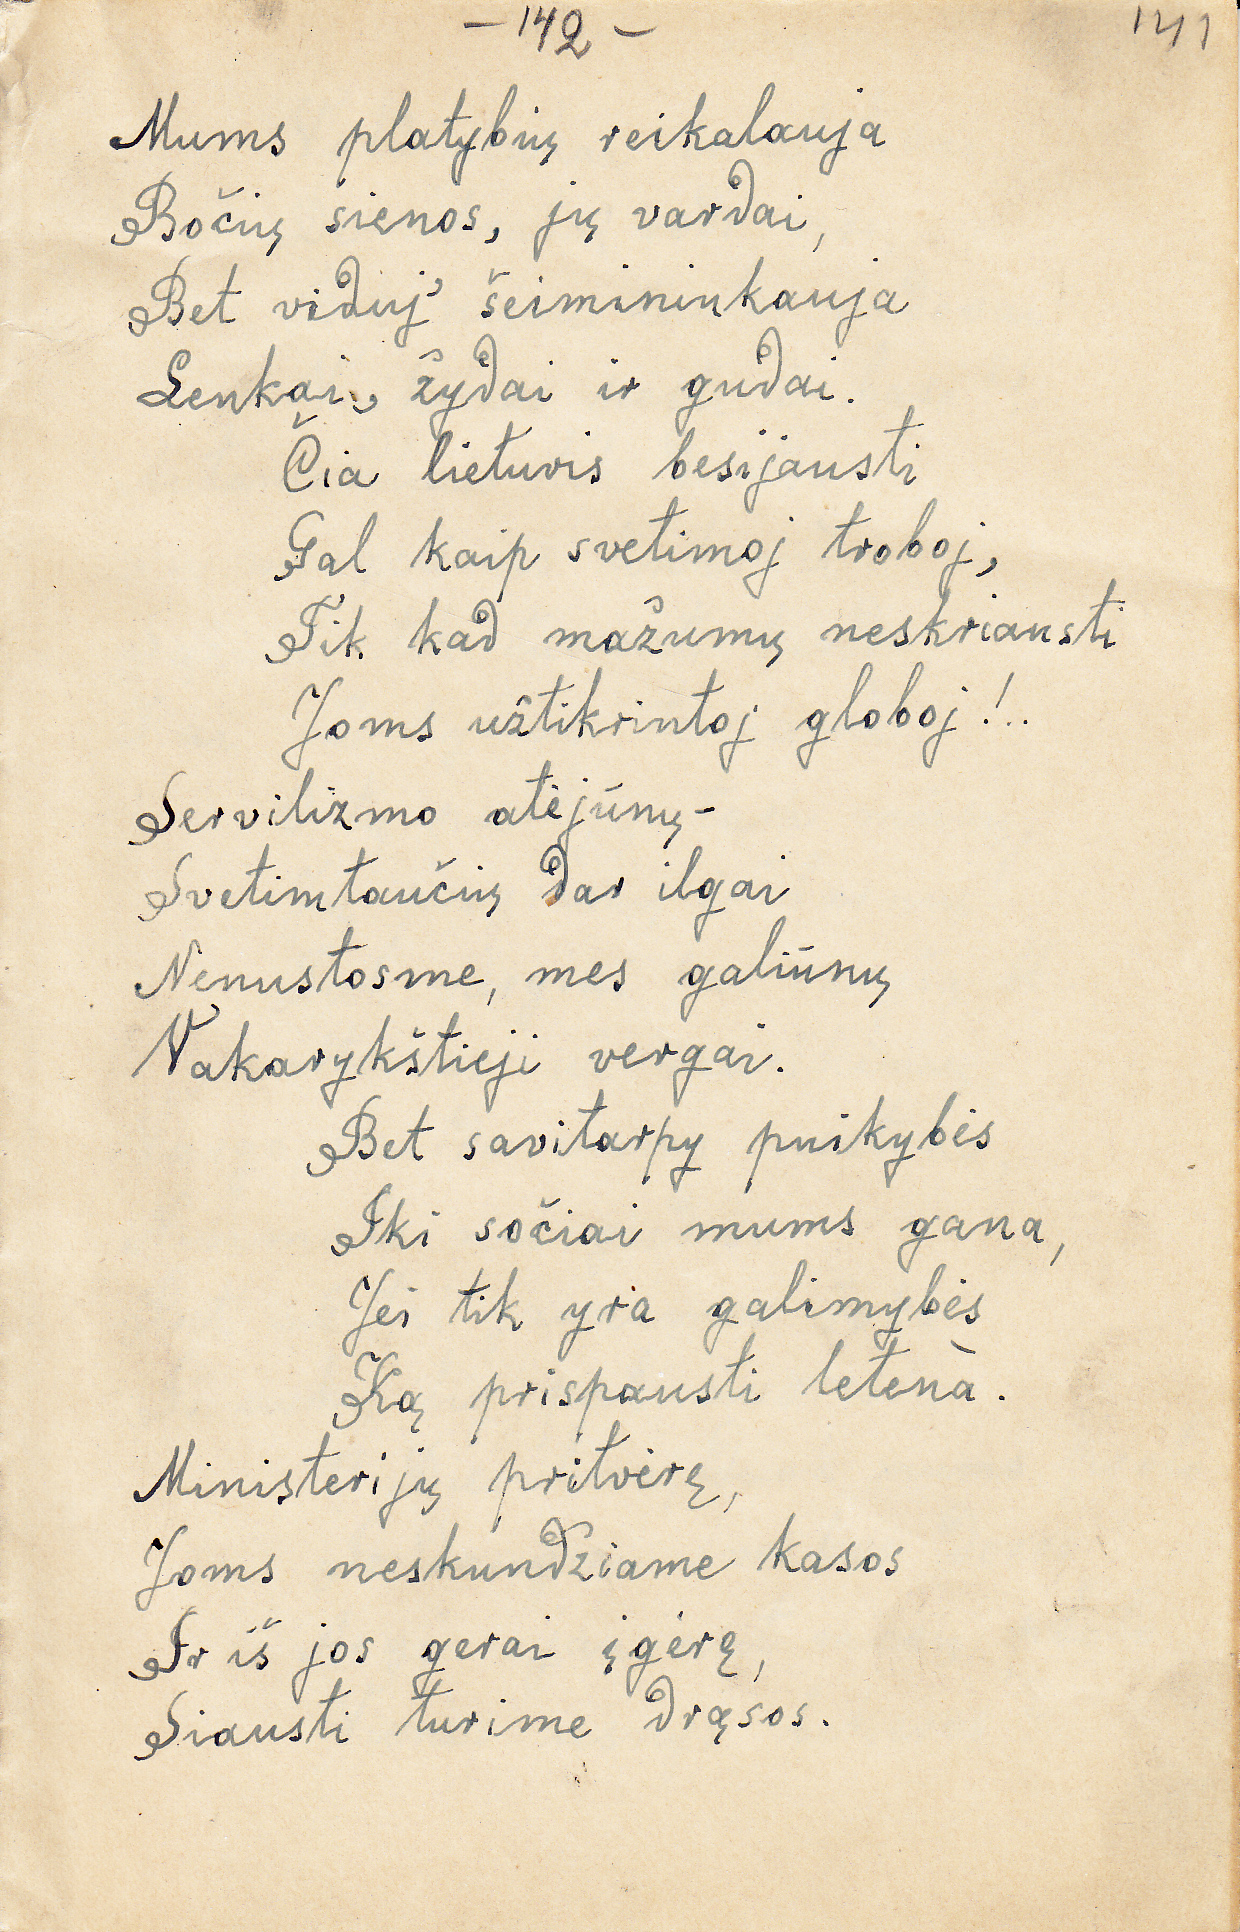 – 142 –
141
Mums platybių reikalauja
Bočių sienos, jų vardai,
Bet viduj' šeimininkauja
Lenkai, žydai ir gudai.
Čia lietuvis besijausti
Gal kaip svetimoj troboj,
Tik kad mažumų neskriausti
Joms užtikrintoj globoj!..
Servilizmo atėjūnų –
Svetimtaučių dar ilgai
Nenustosme, mes galiūnų
Vakarykštieji vergai.
Bet savitarpy puikybės
Iki sočiai mums gana,
Jei tik yra galimybės
Ką prispausti letenà.
Ministerijų pritvėrę,
Joms neskundžiame kasos
Ir iš jos gerai įgėrę,
Siausti turime drąsos.